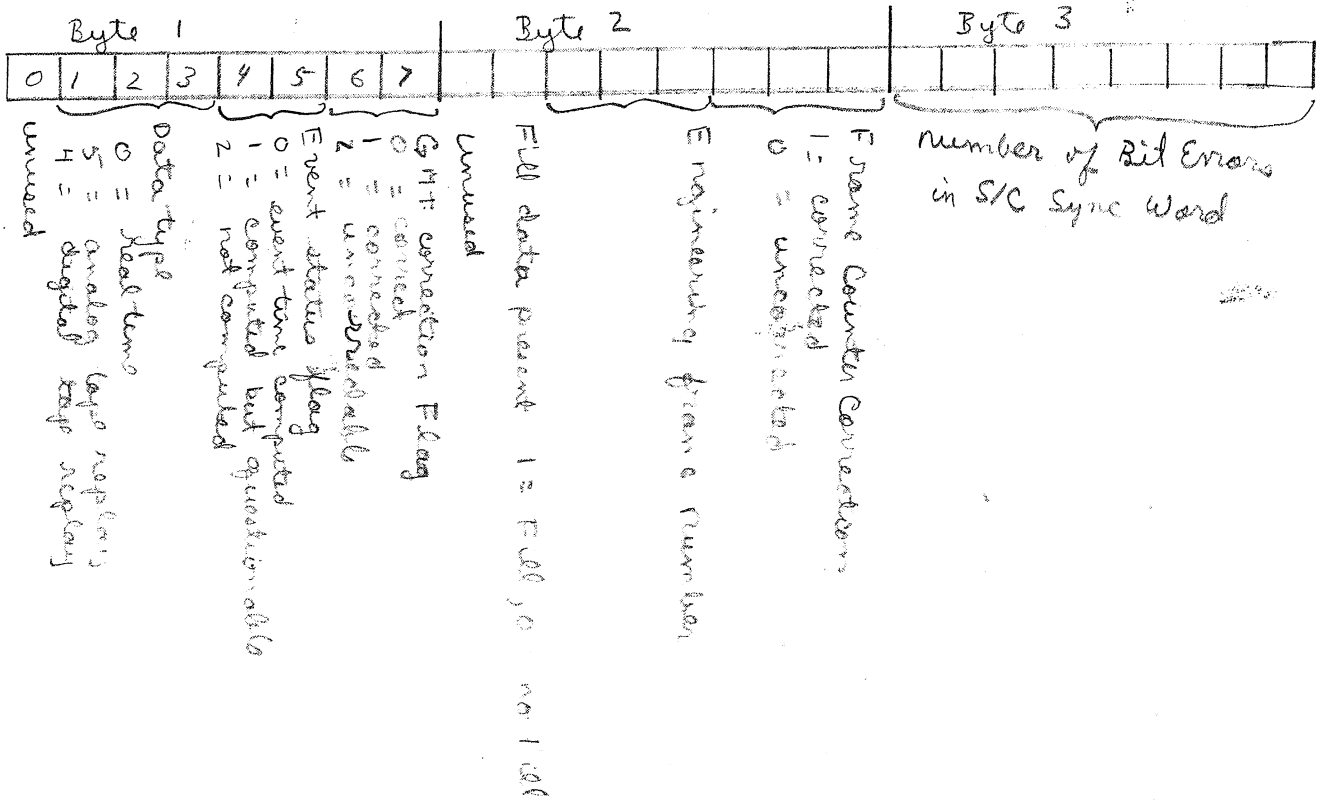 Byte 1
Byte 2
Byte 3
0 1 2 3 4 5 6 7
unused
Data type
0 = Real time
5 = analog tape replay
4 = digital tape replay
Event status flag
0 = event time computed
1 = computed but questionable
2 = not computed
GMT correction Flag
0 = correct
1 = corrected
2 = uncorrectable
unused
Fill data present 1 = Fill, 0 no fill
Engineering frame number
Frame Counter Correction
1 = corrected
0 = uncorrected
Number of Bit Errors
in S/C Sync Word